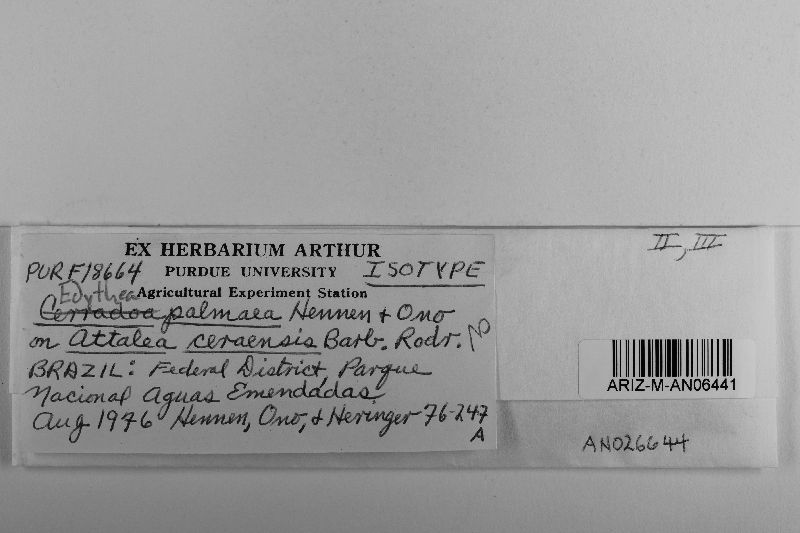 EX HERBARIUM ARTHUR
PUR F18664 PURDUE UNIVERSITY ISOTYPE
Edythea Agricultural Experiment Station
Cerradoa palmaea Hennen & Ono
on Attalea ceraensis Barb. Rodr. NO
BRAZIL: Federal District Parque
Nacional Aguas Emendadas
Aug 1976 Hennen, Ono, & Heringer 76-247
A
II, III
ARIZ-M-AN06441
AN026644